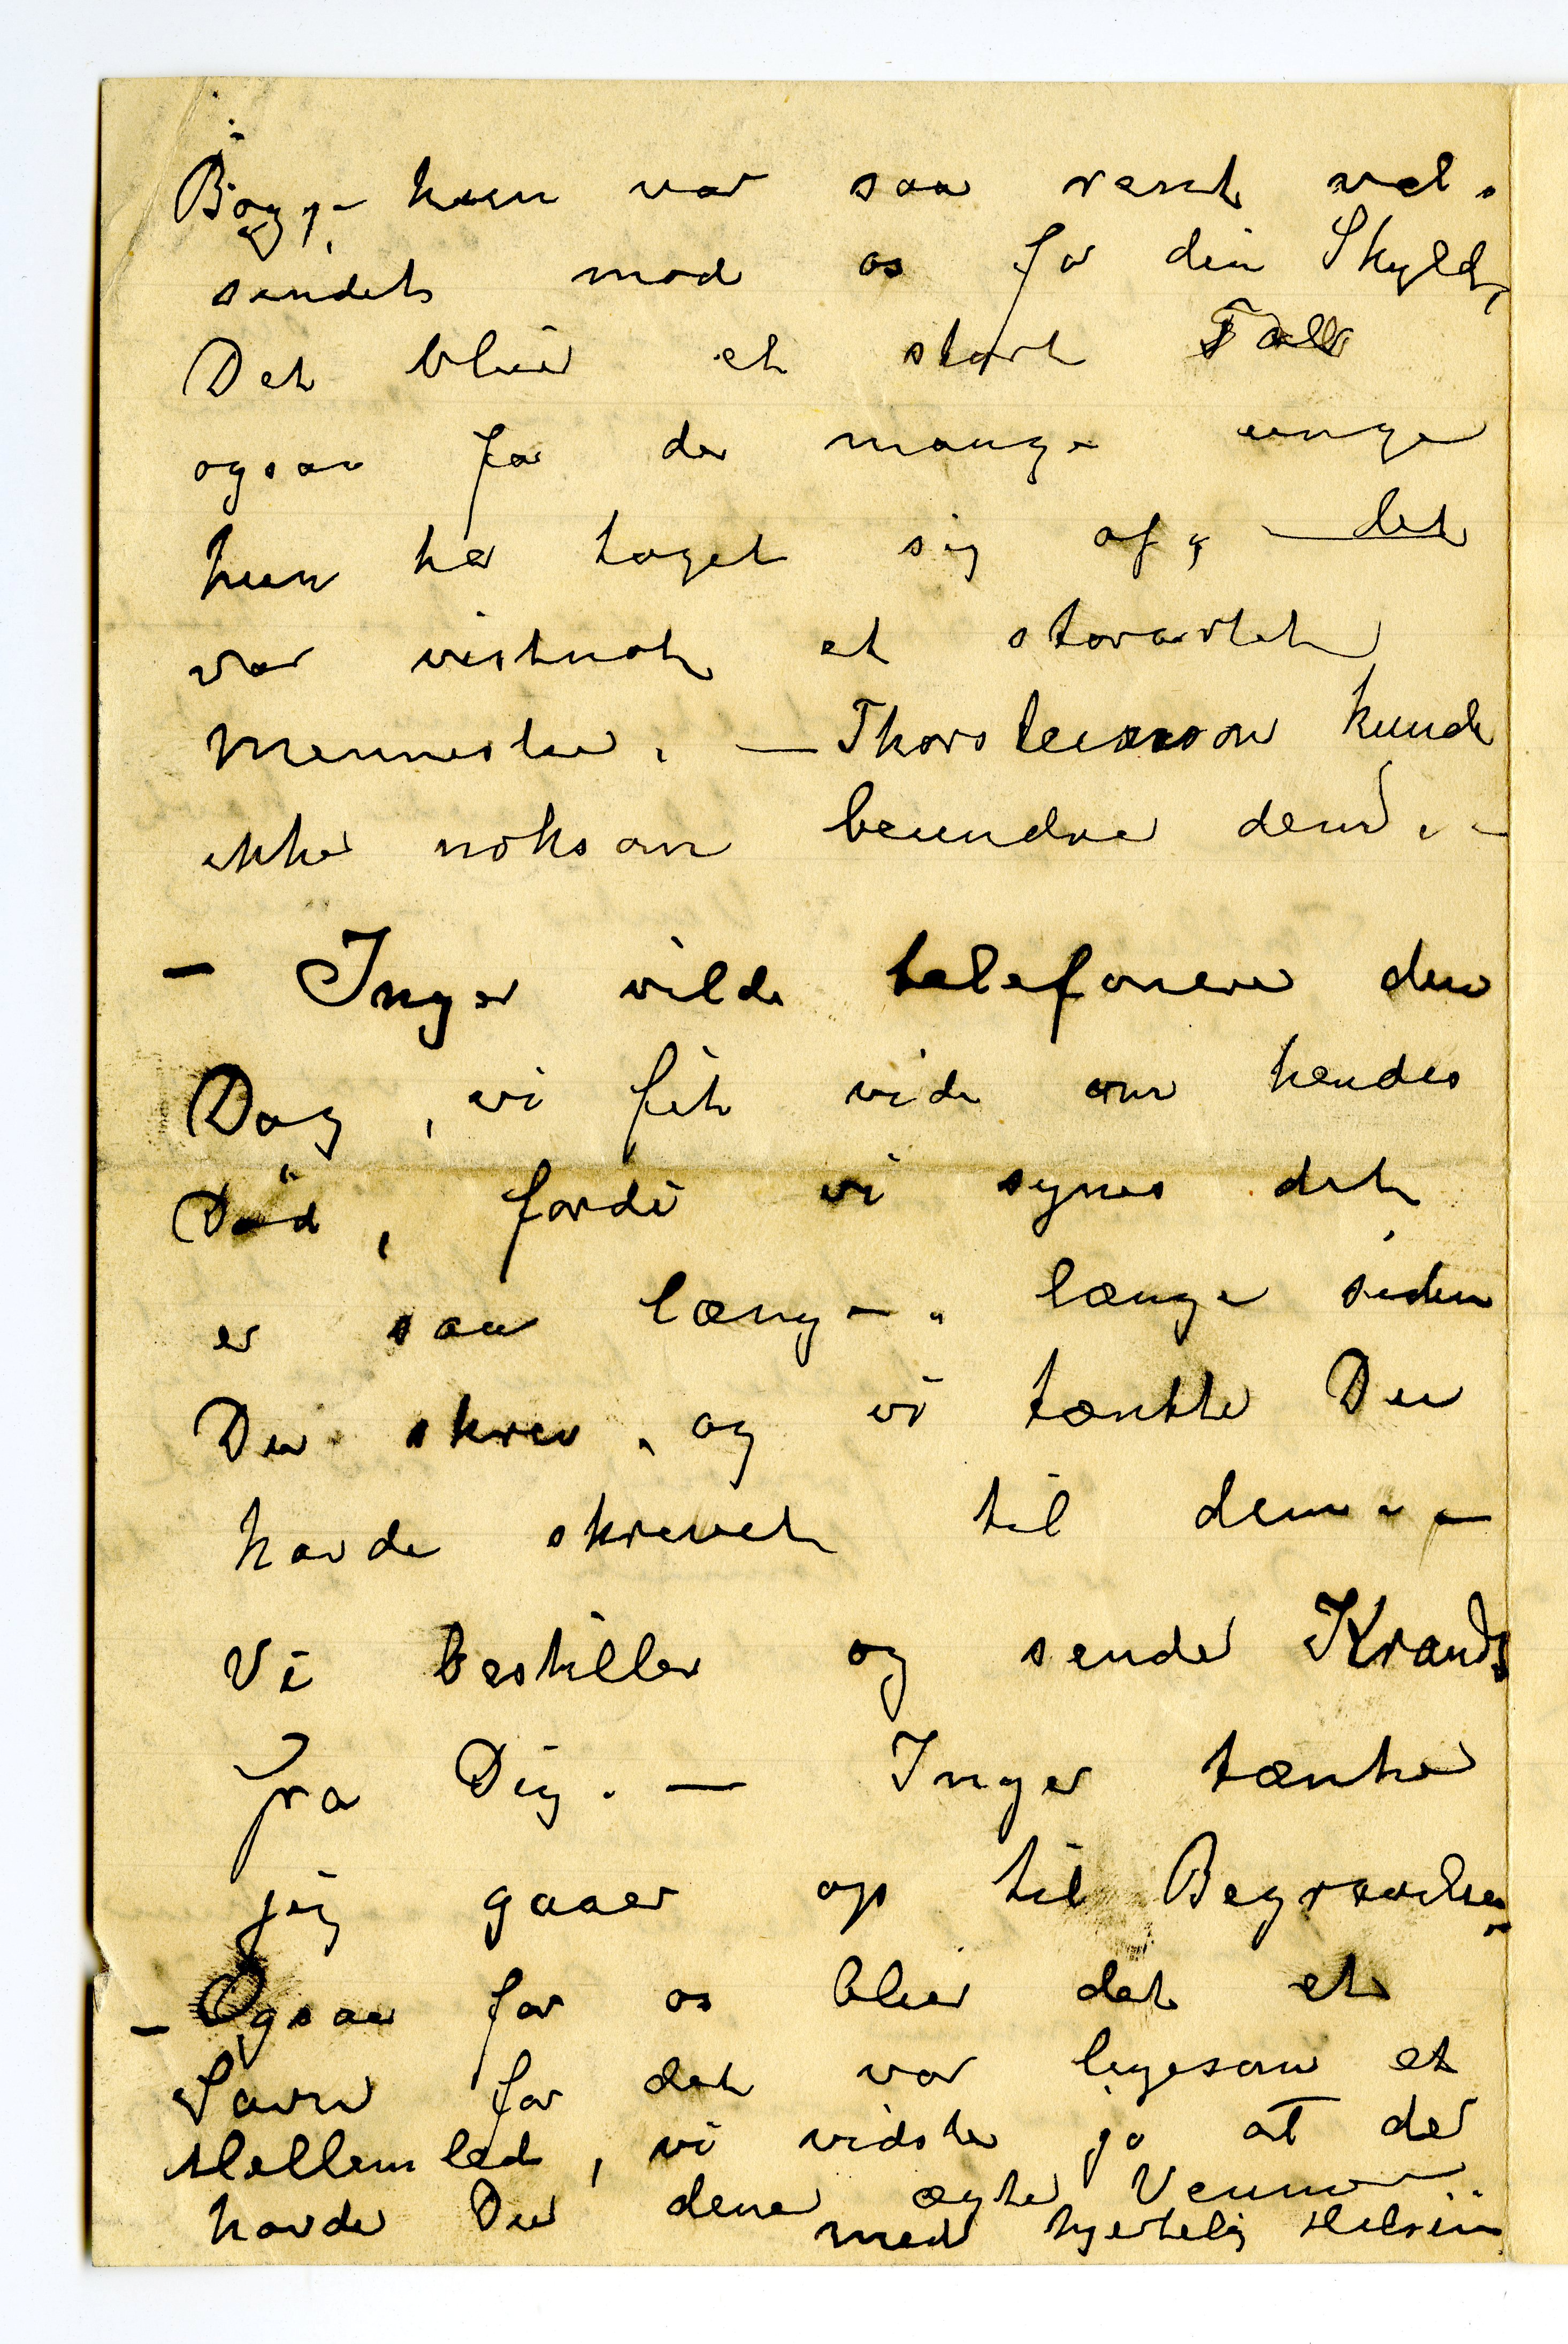 Bøgge hun var saa rask vel-
sindet mod os for din Skyld,
Det bliver et stort Tab
ogsaa for de mange unge
hun har taget sig af, — det
var vistnok et storartet
Menneske. — Thorsteinsson kunde
ikke noksom beundre dem. —
— Inger vilde telefonere den
Dag, vi fik vide om hendes
Død, fordi vi synes det
er saa længe - længe siden
Du skrev, og vi tænkte Du
havde skrevet til dem. —
Vi bestiller og sender Krands
fra Dig. — Inger tænker
jeg gaaer op til Begravelsen.
— Ogsaa for os bliver det et
Savn for det var ligesom et
Mellemled, vi vidste jo at der
havde Du dine ægte Venner.
med hjertelig Hilsen